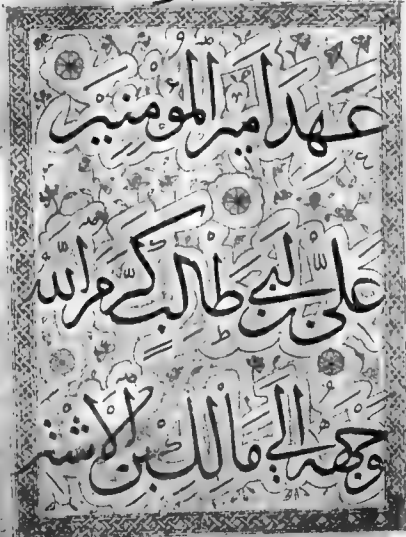 عهد امير المؤمنين
علي بن ابي طالب كرّم الله
وجهه الي مالك بن الاشتر